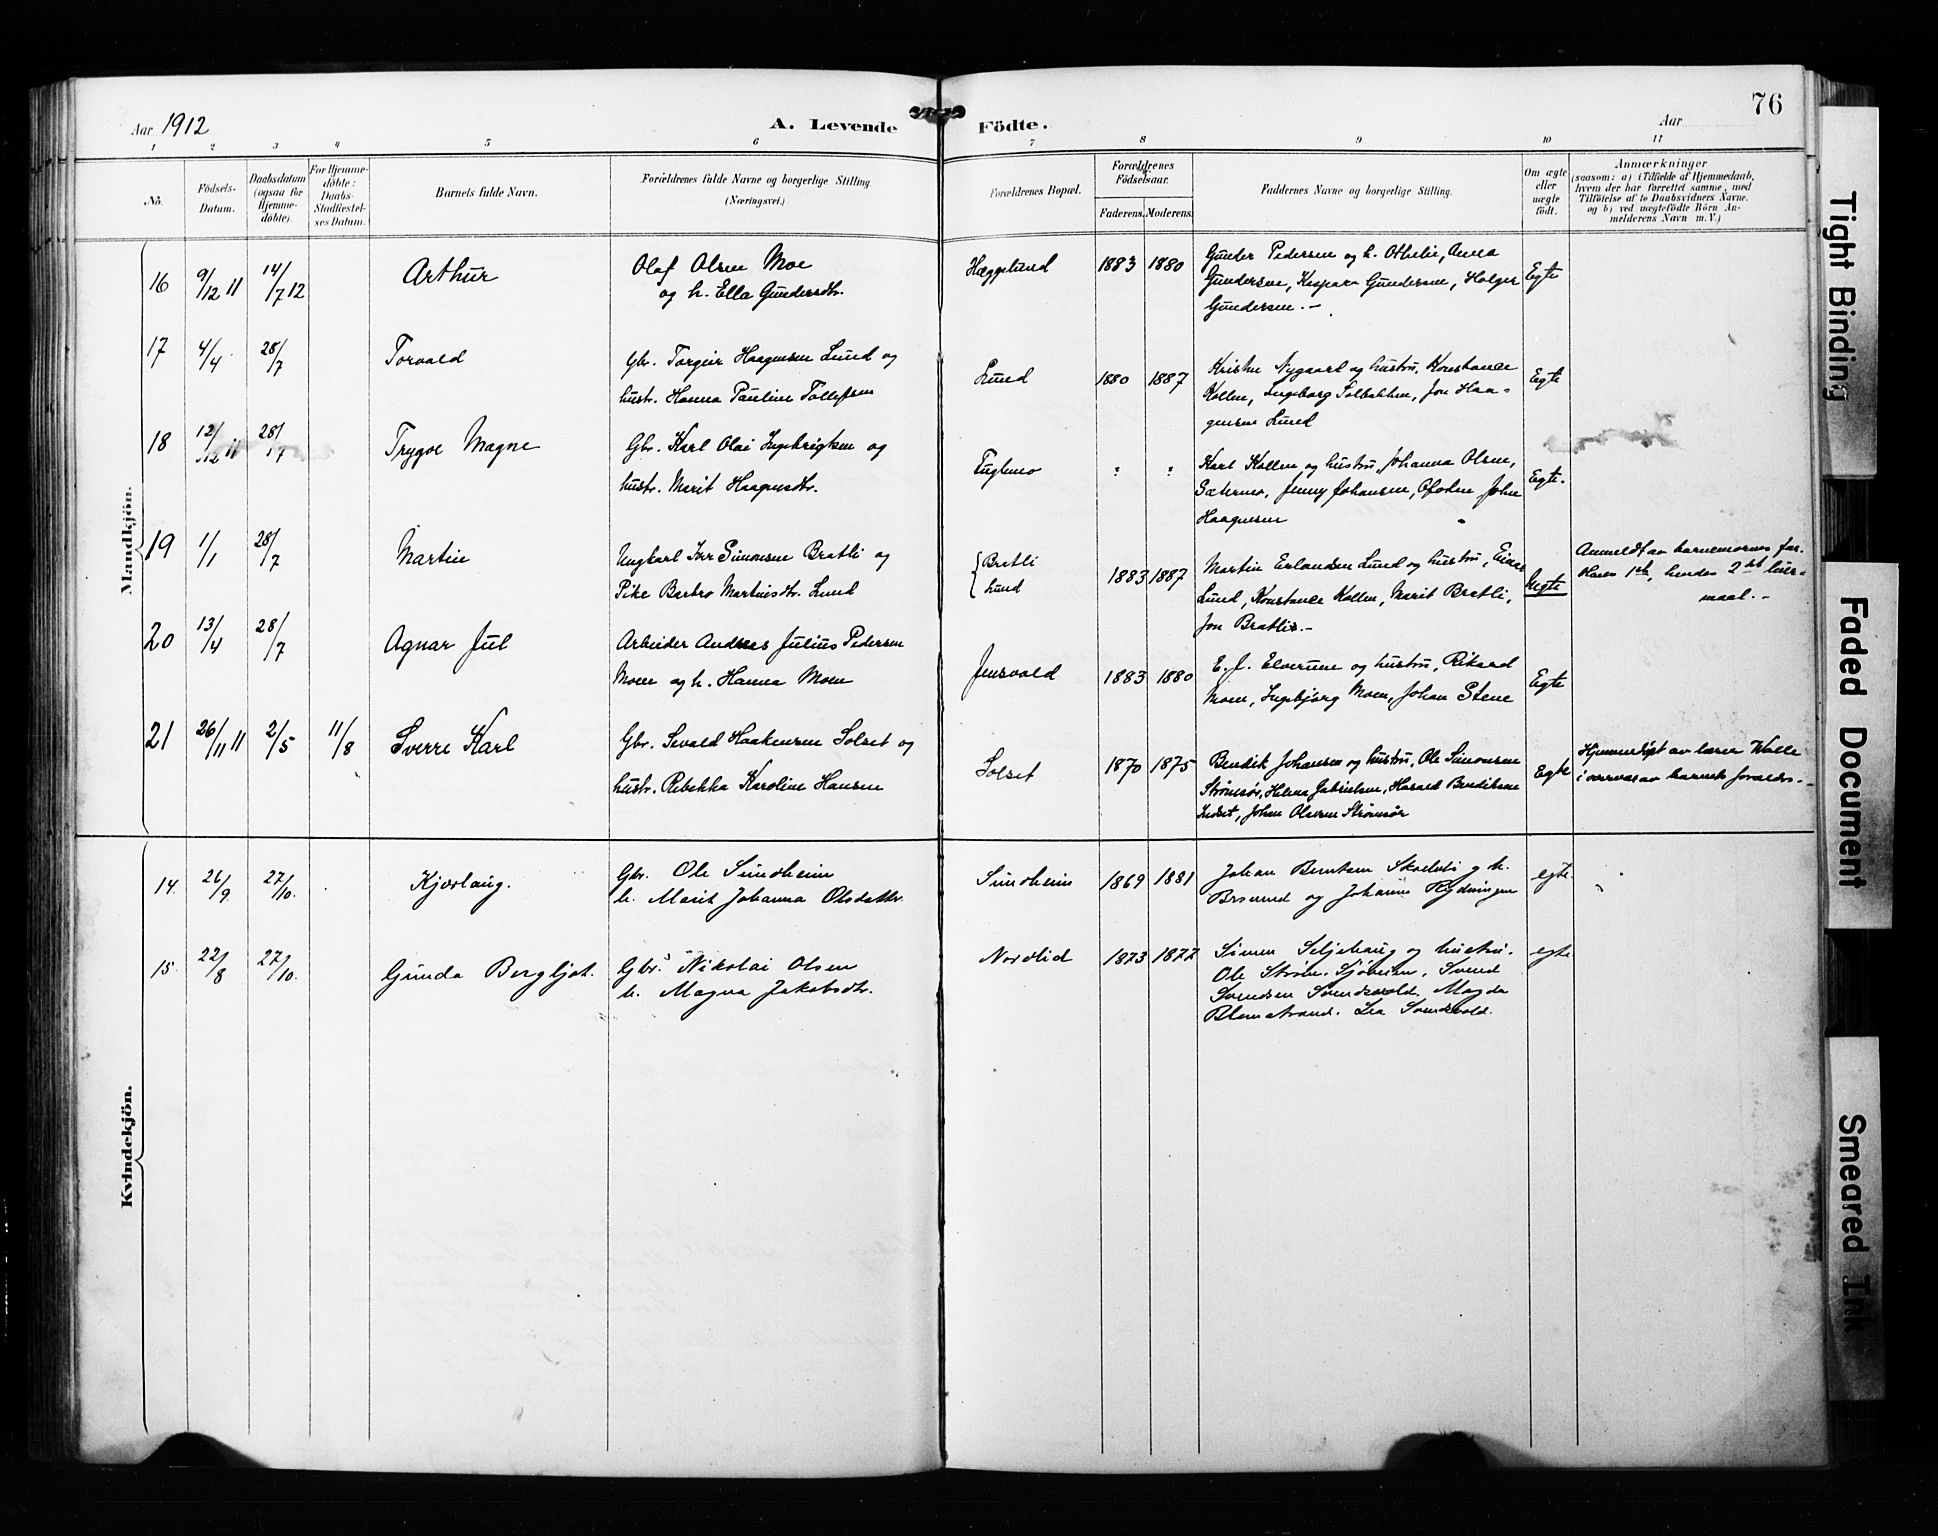 76
Aar 1912
A. Levende Födte.
Aar
1 2 3 4 5 6 7 8 9 10 11
No.
Födsels-Datum.
Daabsdatum (ogsaa for Hjemme-döbte).
For Hjemme-döbte: Daabs-Stadfæstel-ses Datum.
Barnets fulde Navn.
Forældrenes fulde Navne og borgerlige Stilling (Næringsvei.)
Forældrenes Bopæl.
Forældrenes Födselsaar.
Faderens. Moderens.
Faddernes Navne og borgerlige Stilling.
Om ægte eller uægte födt.
Anmærkninger
(saasom: a) i Tilfælde af Hjemmedaab, hvem der har forrettet samme, med Tilföielse af to Daabsvidners Navne, og b) ved uægtefödte Börn An-melderens Navn m. V.)
Mandkjön.
16 9/12 11 14/7 12 Arthur
Olaf Olsen Moe
og h. Ella Gundersdtr.
Hæggelund 1883 1880
Gunder Pedersen og h. Othelie, Anna
Gundersen, Kaspara Gundersen, Holger
Gundersen. –
Egte
17 4/4 28/7 Torvald
Gbr. Torgeir Haagensen Lund og
hustr. Hanna Pauline Tollefsen
Lund 1880 1887
Nygaard og hustru, Konstanse
Kollen, Ingeborg Solbakken, Jon Haa-
gensen Lund
Egte
18 12/12 11 28/7 Trygve Magne
Gbr. Karl Olai Ingebrigtsen og
hustr. Marit Haagensdtr.
Fuglmo : :
Karl Kollen og hustru, Johanna Olsen,
Sætermo, Jenny Johansen, John
Haagensen
Egte.
19 1/1 28/7 Martin
Ungkarl Simonsen Bratli og
Pike Barbro Martinisdtr. Lund
{ Bratli
Lund 1883 1887
Martin Erlandsen Lund og hustru, Einar
Lund, Konstanse Kollen, Marit Bratli,
Jon Bratli. –
Uegte
Anmeldt av barnemoren
1ste, hendes 2det leier-
maal. –
20 13/4 28/7 Agnar Jul
Arbeider Andreas Julius Pedersen
Moen og h. Hanna Moen
Jensvold 1883 1880
E. J. Elverum og hustru, Rikard
Moen, Ingebjørg Moen, Johan Stene
Egte
21 26/11 11 2/5 11/8 Sverre Karl
Gbr. Sevald Haakensen Solset og
hustr. Rebekka Karoline Hansen
Solset 1870 1875
Bendik Johansen og hustru, Ole Simonsen
Strømsør, Helena Gabrielsen, Harald Bendiksen
Indset, Johan Olsen Strømsør
Egte
Hjemmedøpt av lærer Walle
i overvær av barnets forældre. –
Kvindekjön.
14. 26/9 27/10. Kjærlaug.
Gbr. Ole Sundheim
h. Marit Johanna Olsdatter
Sundheim 1869 1881
Johan Berntsen og h.
og Johanne Rydningen
egte.
15. 22/8 27/10. Gunda Bergljot.
Gbr. Nikolai Olsen
h. Magna Jakobsdtr.
Nordlid 1873 1877
Simen Seljehaug og hustru.
Ole Sjøheim, Svend
Svendsen Svendsvold. Magda
Blomstrand. Lea Svendsvold.
egte
Tight Binding
Faded Document
Smeared Ink